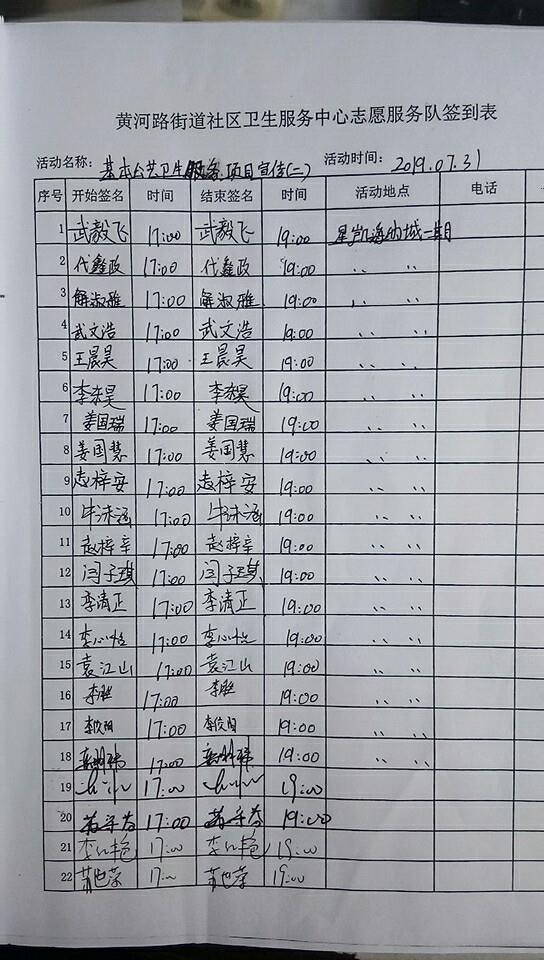 黄河路街道社区卫生服务中心志愿服务队签到表
活动名称：基本公共卫生服务项目宣传(二) 活动时间：2019.07.31
序号 开始签名 时间 结束签名 时间 活动地点 电话
1 武毅飞 17:00 武毅飞 19:00 星凯海的城一期
2 代鑫政 17:00 代鑫政 19:00 、、 、、
3 解淑雅 17:00 解淑雅 19:00 、、 、、
4 武文浩 17:00 武文浩 19:00 、、 、、
5 王晨昊 17:00 王晨昊 19:00 、、 、、
6 李東昊 17:00 李東昊 19:00 、、 、、
7 姜国瑞 17:00 姜国瑞 19:00 、、 、、
8 姜国慧 17:00 姜国慧 19:00 、、 、、
9 袁梓安 17:00 袁梓安 19:00 、、 、、
10 牛沫涵 17:00 牛沫涵 19:00 、、 、、
11 赵梓辛 17:00 赵梓辛 19:00 、、 、、
12 闫子琪 17:00 闫子琪 19:00 、、 、、
13 李清正 17:00 李清正 19:00 、、 、、
14 李心怡 17:00 李心怡 19:00 、、 、、
15 袁江山 17:00 袁江山 19:00 、、 、、
16 李胜 17:00 李胜 19:00 、、 、、
17 李欣阳 17:00 李欣阳 19:00 、、 、、
18 17:00 19:00 、、 、、
19 17:00 19:00
20 17:00 19:00
21 17:00 19:00
22 17:00 19:00